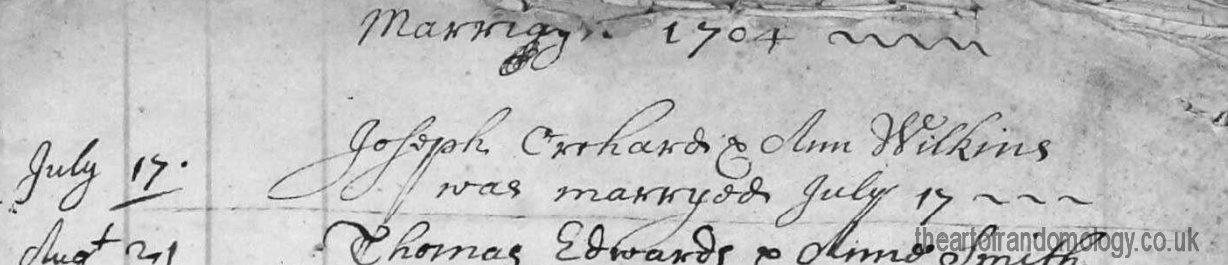 Marriags. 1704
July 17. Joseph Orchard & Ann Wilkins
was marryed July 17
Augt 21 Thomas Edwards & Anne Smith
theartofrandomology.co.uk